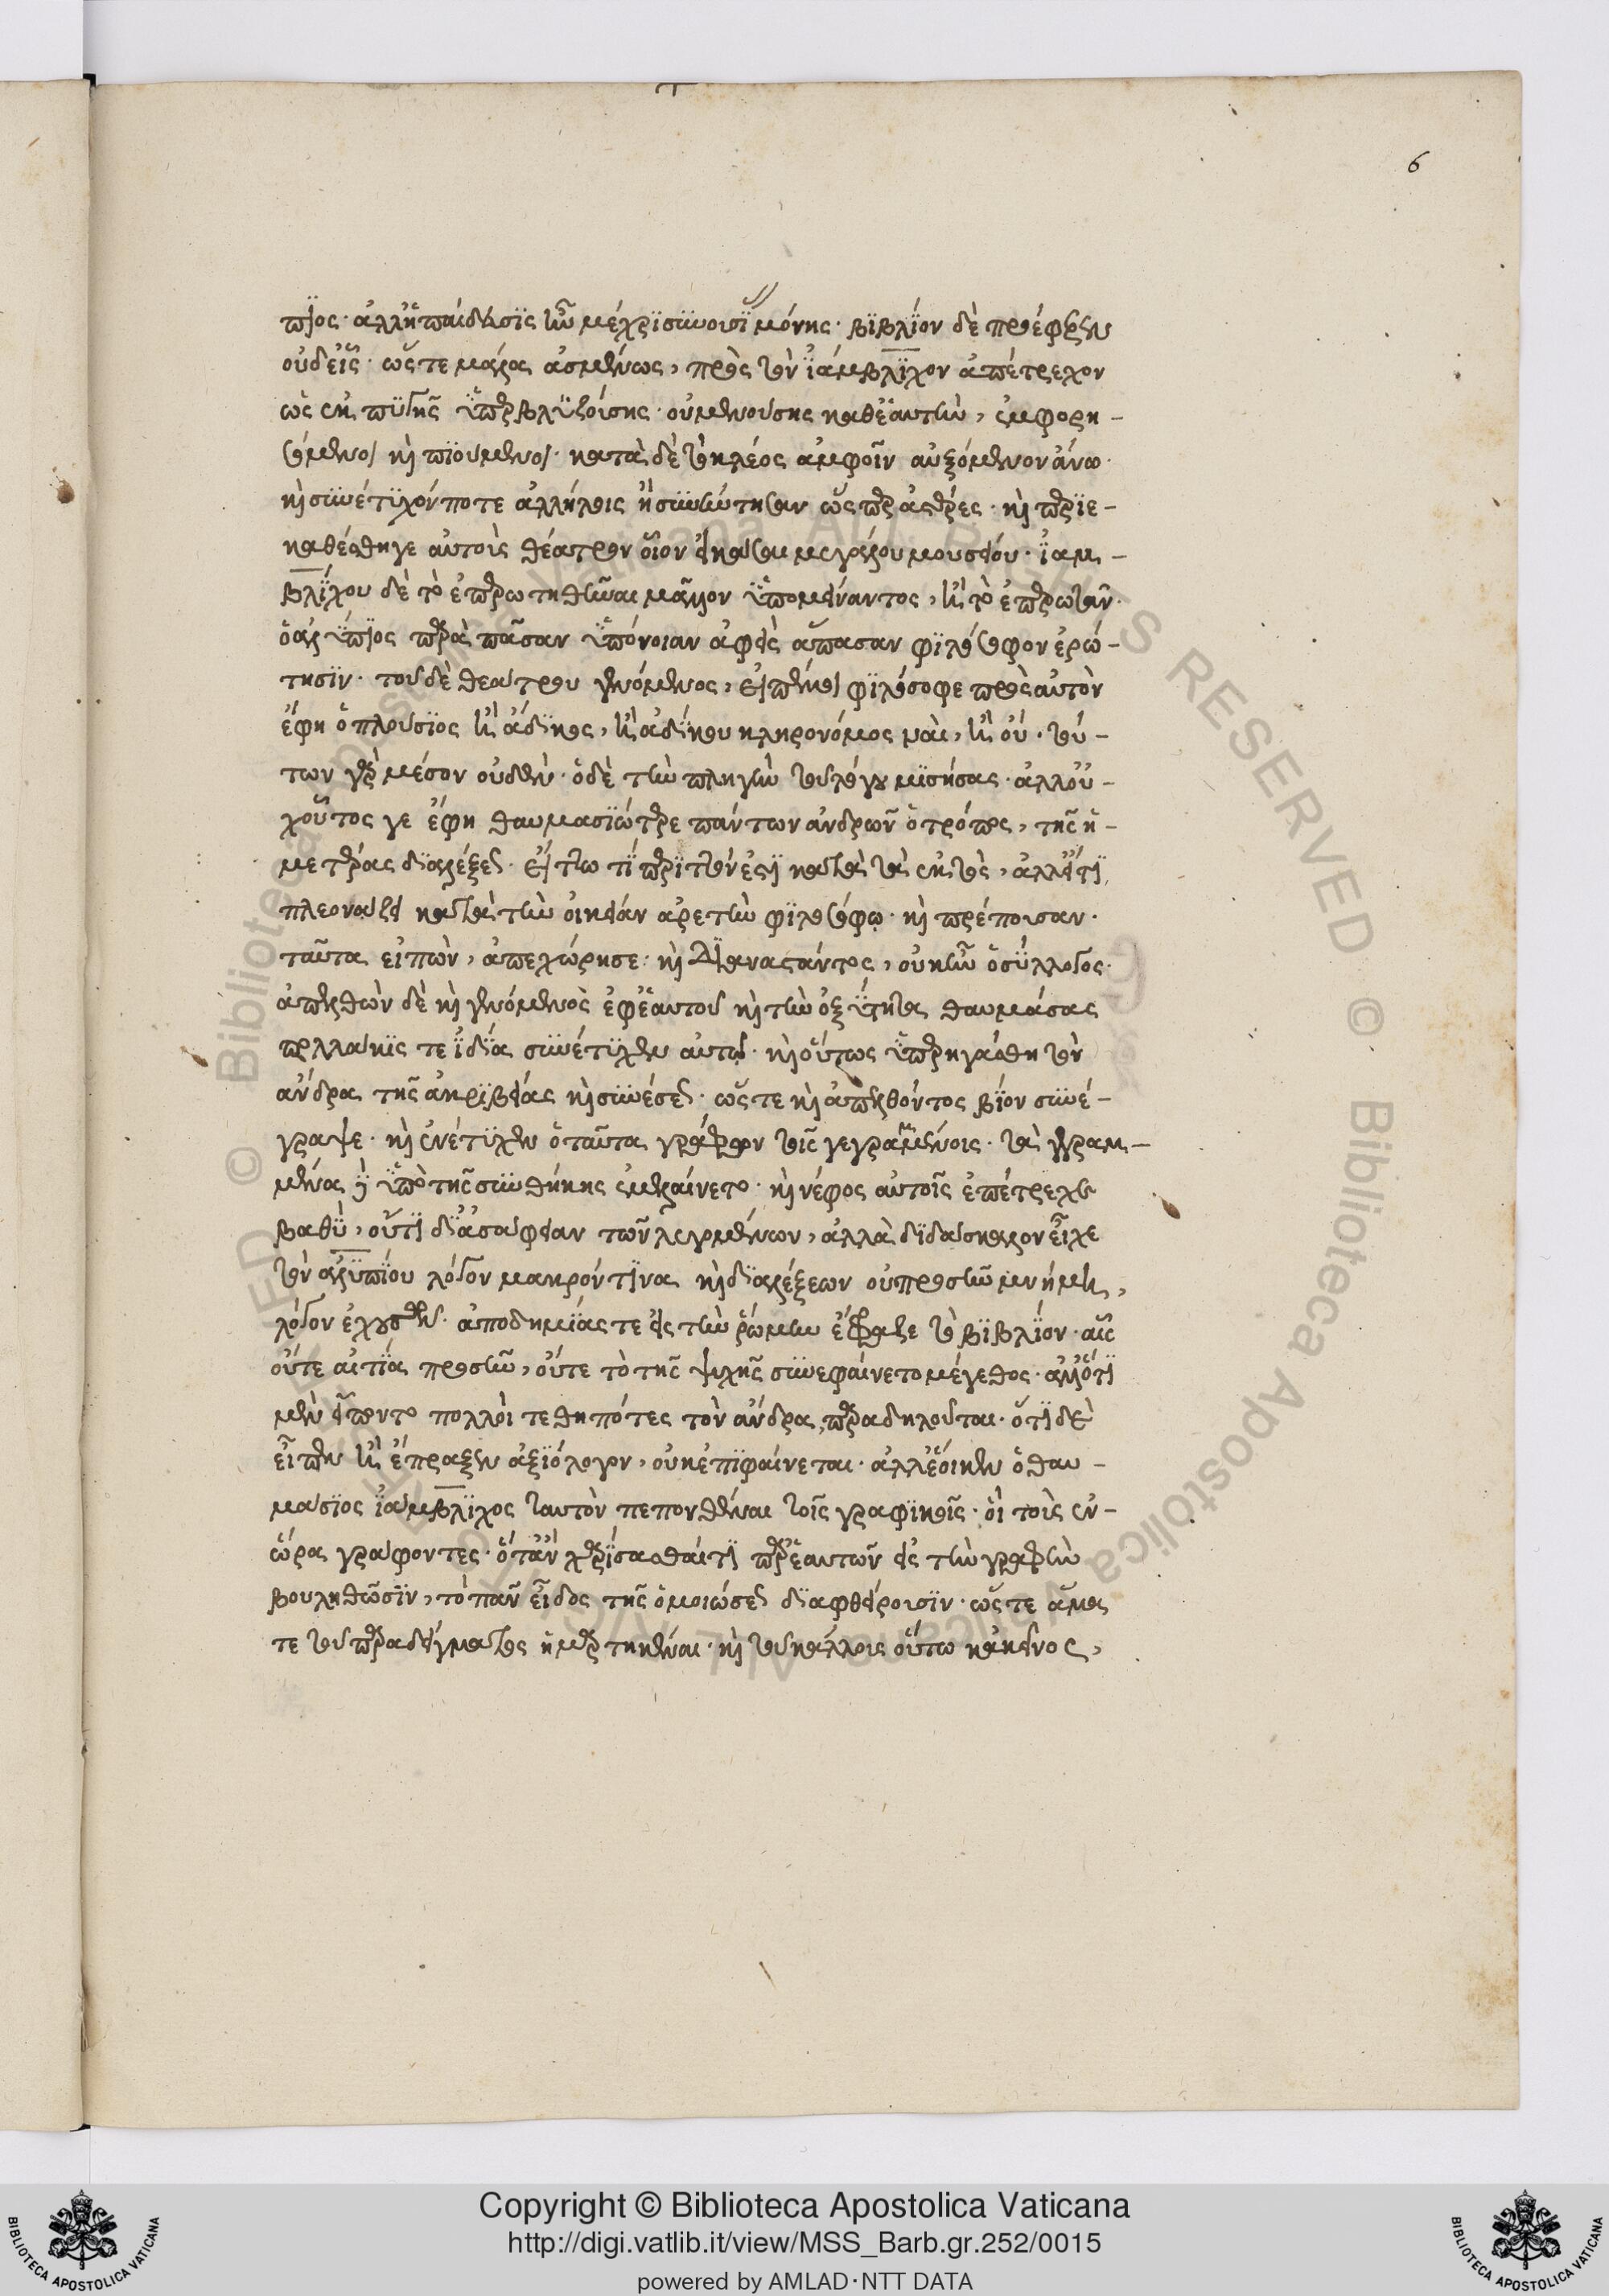 6
πιος· ἀλλ' ἡ παίδευσις ἦν μέχρι συνουσίας μόνης· βιβλίον δὲ προέφερεν
οὐδείς· ὥστε μάλα ἀσμένως, πρὸς τὸν ἰάμβλιχον ἀπέτρεχον
ὡς ἐκ πηγῆς ὑπερβλυζούσης· οὐ μενούσης καθ' ἑαυτὴν, ἐμφορη-
σόμενοι καὶ πιούμενοι· κατὰ δὲ τὸ κλέος ἀμφοῖν αὐξόμενον ἄνω·
καὶ συνέτυχόν ποτε ἀλλήλοις ἢ συνήντησαν ὥσπερ ἀστέρες· καὶ περιε-
καθέσθη γε αὐτοῖς θέατρον οἷον εἰκάσαι μεγάλου μουσείου· ἰαμ-
βλίχου δὲ τὸ ἐπερωτηθῆναι μᾶλλον ὑπομείναντος, ἢ τὸ ἐπερωτᾶν·
ὁ ἀλύπιος παρὰ πᾶσαν ὑπόνοιαν ἀφεὶς ἅπασαν φιλόσοφον ἐρώ-
τησιν· τοῦ δὲ θεάτρου γενόμενος, εἰπέ μοι φιλόσοφε πρὸς αὐτὸν
ἔφη ὁ πλούσιος ἢ ἄδικος, ἢ ἀδίκου κληρονόμος ναὶ, ἢ οὔ· τού-
των γὰρ μέσον οὐδέν· ὁ δὲ τὴν πληγὴν τοῦ λόγου μισήσας· ἀλλ' οὐ-
χ οὗτος γε ἔφη θαυμασιώτατε πάντων ἀνδρῶν ὁ τρόπος, τῆς ἡ-
μετέρας διαλέξεως· εἴ τῳ τί περιττόν ἐστι κατὰ τὰ ἐκτὸς, ἀλλ' εἴ τι
πλεονάζει κατὰ τὴν οἰκείαν ἀρετὴν φιλοσόφῳ· καὶ πρέπουσαν·
ταῦτα εἰπὼν, ἀπεχώρησε· καὶ διαναστάντος, οὐκ ἦν ὁ σύλλογος·
ἀπελθὼν δὲ καὶ γενόμενος ἐφ' ἑαυτοῦ καὶ τὴν ὀξύτητα θαυμάσας
πολλάκις τε ἰδίᾳ συνέτυχεν αὐτῷ· καὶ οὕτως ὑπερηγάσθη τὸν
ἄνδρα τῆς ἀκριβείας καὶ συνέσεως· ὥστε καὶ ἀπελθόντος βίον συνέ-
γραψε· καὶ ἐνέτυχεν ὁ ταῦτα γράφων τοῖς γεγραμμένοις· τὰ γεγραμ-
μένα ὑπὸ τῆς συνθήκης ἐμελαίνετο· καὶ νέφος αὐτοῖς ἐπέτρεχε
βαθύ, οὔτι δι' ἀσάφειαν τῶν λεγομένων, ἀλλὰ διδασκαλικὸν εἶχε
τὸν ἀλυπίου λόγον μακρόν τινα καὶ διαλέξεων οὐ προσῆν μνήμη,
λόγον ἐχούσαις· ἀποδημίας τε εἰς τὴν ῥώμην ἔφραζε τὸ βιβλίον· αἷς
οὔτε αἰτία προσῆν, οὔτε τὸ τῆς ψυχῆς συνεφαίνετο μέγεθος· ἀλλ' ὅτι
μὲν εἵποντο πολλοὶ τεθηπότες τὸν ἄνδρα, παραδηλοῦται· ὅτι δὲ
εἶπεν ἢ ἔπραξεν ἀξιόλογον, οὐκ ἐπιφαίνεται· ἀλλ' ἔοικεν ὁ θαυ-
μάσιος ἰάμβλιχος ταυτὸν πεπονθέναι τοῖς γραφικοῖς· οἳ τοὺς ἐν
ὥρᾳ γράφοντες· ὅταν χαρίσασθαί τι παρ' ἑαυτῶν εἰς τὴν γραφὴν
βουληθῶσιν, τὸ πᾶν εἶδος τῆς ὁμοιώσεως διαφθείρουσιν· ὥστε ἅμα
τε τοῦ παραδείγματος ἡμαρτηκέναι· καὶ τοῦ κάλλους οὕτω κἀκεῖνος,
Copyright © Biblioteca Apostolica Vaticana
http://digi.vatlib.it/view/MSS_Barb.gr.252/0015
powered by AMLAD·NTT DATA